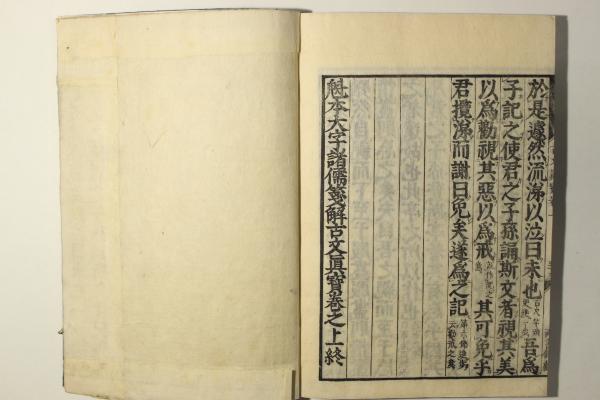 於是遽然流涕以泣曰未也吾爲
子記之使君之子孫誦斯文者視其美
以爲勸視其惡以爲戒其可免乎
君攬涕而謝曰免矣遂爲之記
魁本大字諸儒箋解古文眞寶卷之上終